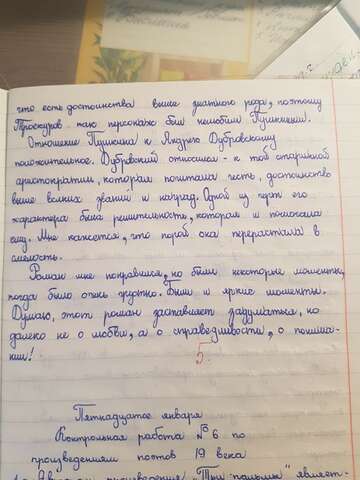 что есть достоинства выше знатного рода, поэтому
Троекуров как персонаж был нелюбим Пушкиным.
Отношение Пушкина к Андрею Дубровскому
положительное. Дубровский относился к той старинной
аристократии, которая почитала честь, достоинство
выше всяких званий и наград. Одной из черт его
характера была решительность, которая и помогала
ему. Мне кажется, что порой она перерастала в
смелость.
Роман мне понравился, но были некоторые моменты,
когда было очень грустно. Были и яркие моменты.
Думаю, этот роман заставляет задуматься, но
далеко не о любви, а о справедливости, о понима-
нии!
5
Пятнадцатое января
Контрольная работа №6 по
произведениям поэтов 19 века
произведение "Три пальмы" являет-